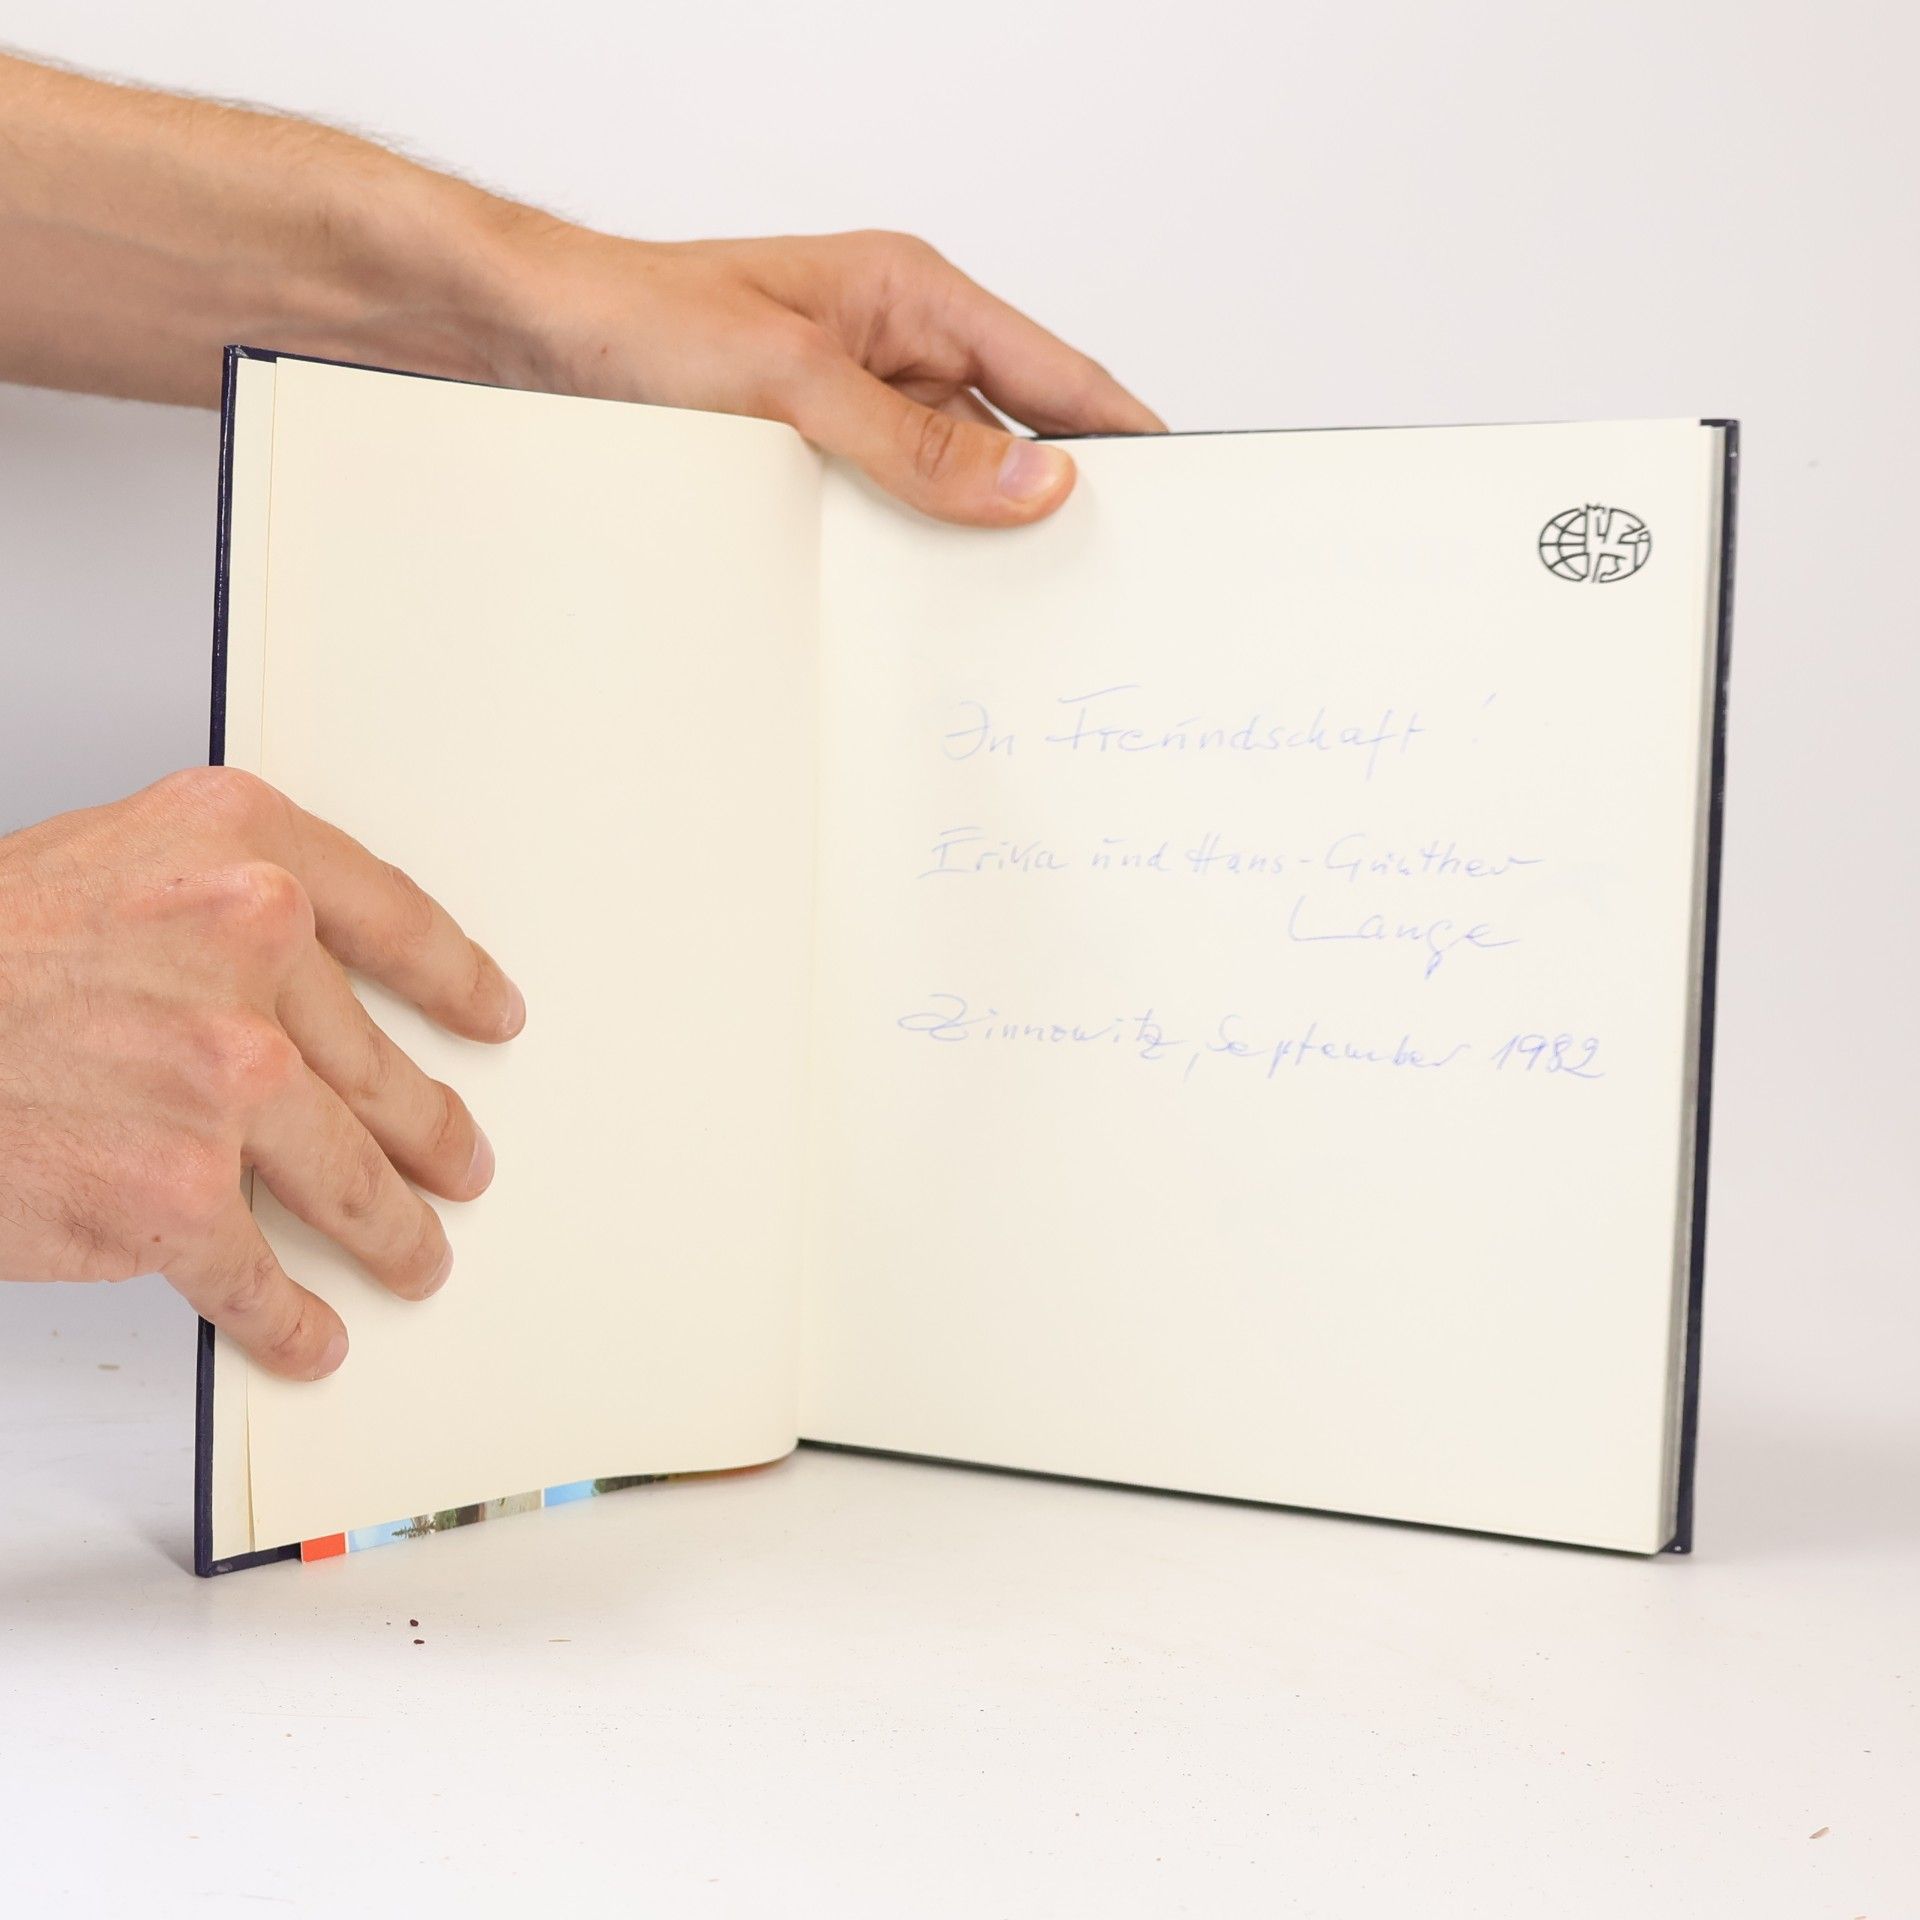 In Freundschaft!
Erika und Hans-Günther
Lange
Zinnowitz, September 1982